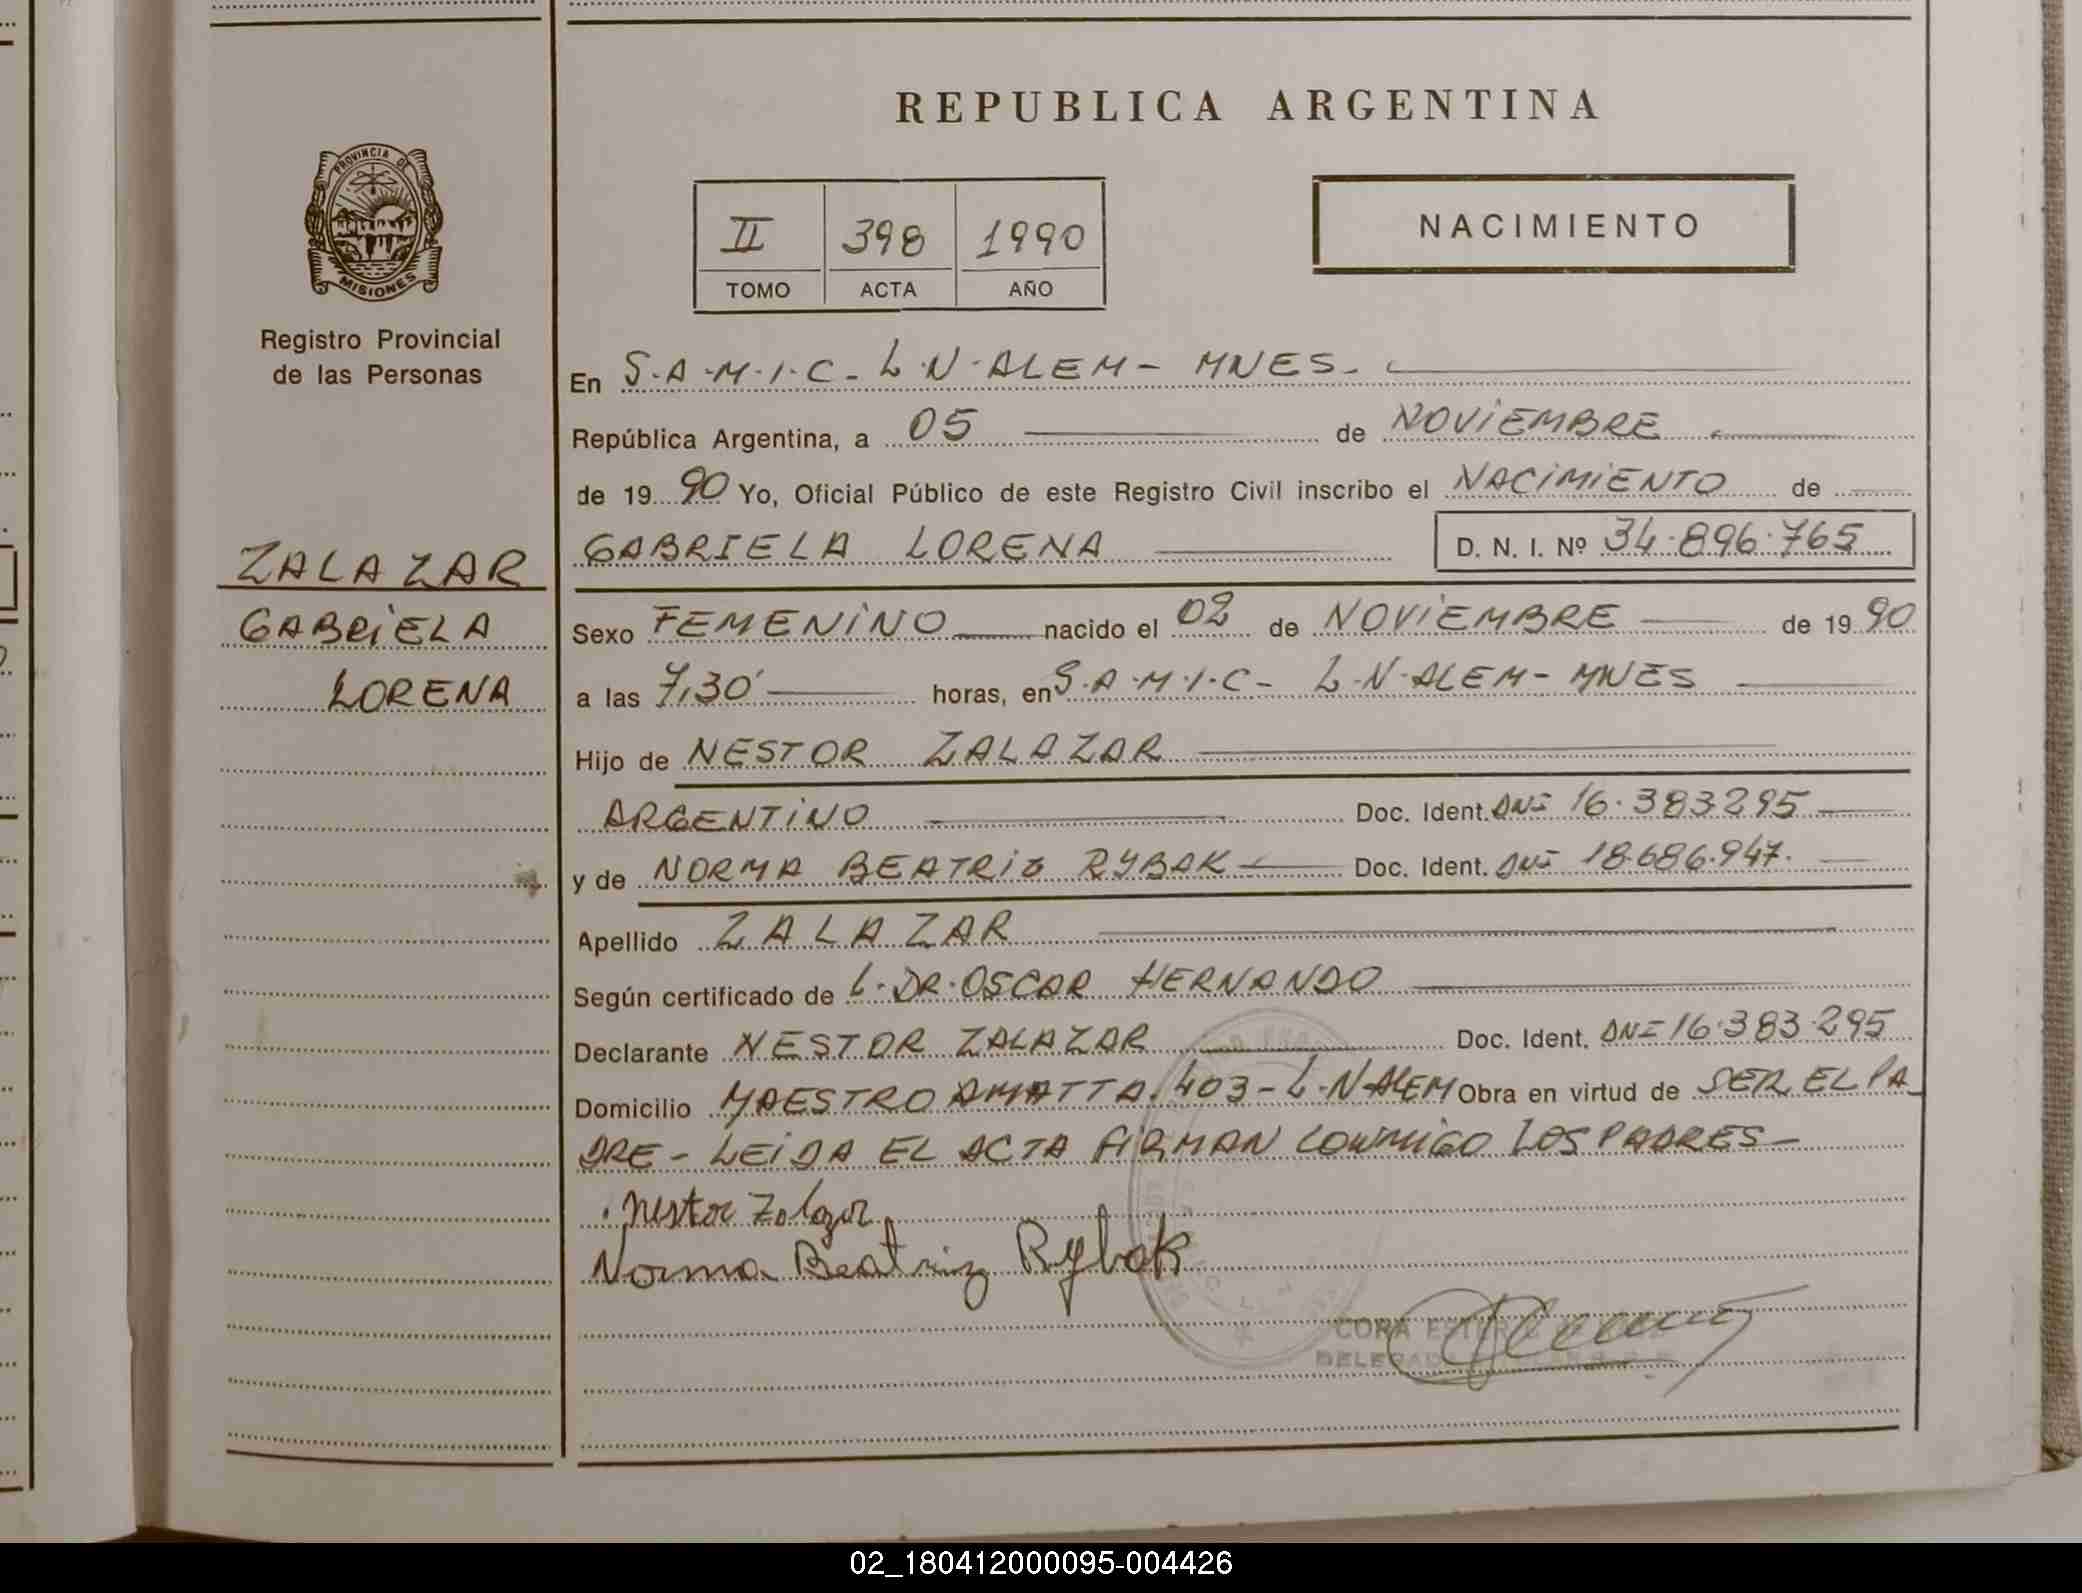 REPUBLICA ARGENTINA
PROVINCIA DE
MISIONES
Registro Provincial
de las Personas
II 398 1990
TOMO ACTA AÑO
NACIMIENTO
En S.A.M.I.C. L.N.ALEM - MNES.
República Argentina, a 05 de NOViEMBRE
de 1990 Yo, Oficial Público de este Registro Civil inscribo el NACiMiENTO de
GABRIELA LORENA D. N. I. Nº 34.896.765
ZALAZAR
GABRiELA
LORENA
Sexo FEMENiNO nacido el 02 de NOViEMBRE de 1990
a las 7,30' horas, en S.A.M.I.C - L.N.ALEM - MNES
Hijo de NESTOR ZALAZAR
ARGENTiNO Doc. Ident. DNI 16.383295
y de NORMA BEATRiZ RYBAK Doc. Ident. DNI 18.686.947.
Apellido ZALAZAR
Según certificado de L. DR. OSCAR HERNANDO
Declarante NESTOR ZALAZAR Doc. Ident. DNI 16.383.295
Domicilio MAESTRO AMATTA. 403 - L.N.ALEM Obra en virtud de SER EL PA
DRE - LEiDA EL ACTA FiRMAN CONMiGO LOS PADRES -
Nestor Zalazar
Norma Beatriz Rybak
CORA
02_180412000095-004426